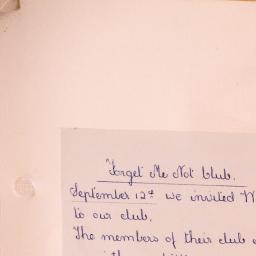 Forget Me Not Club.
September 12th we invited W
to our club.
The members of their club